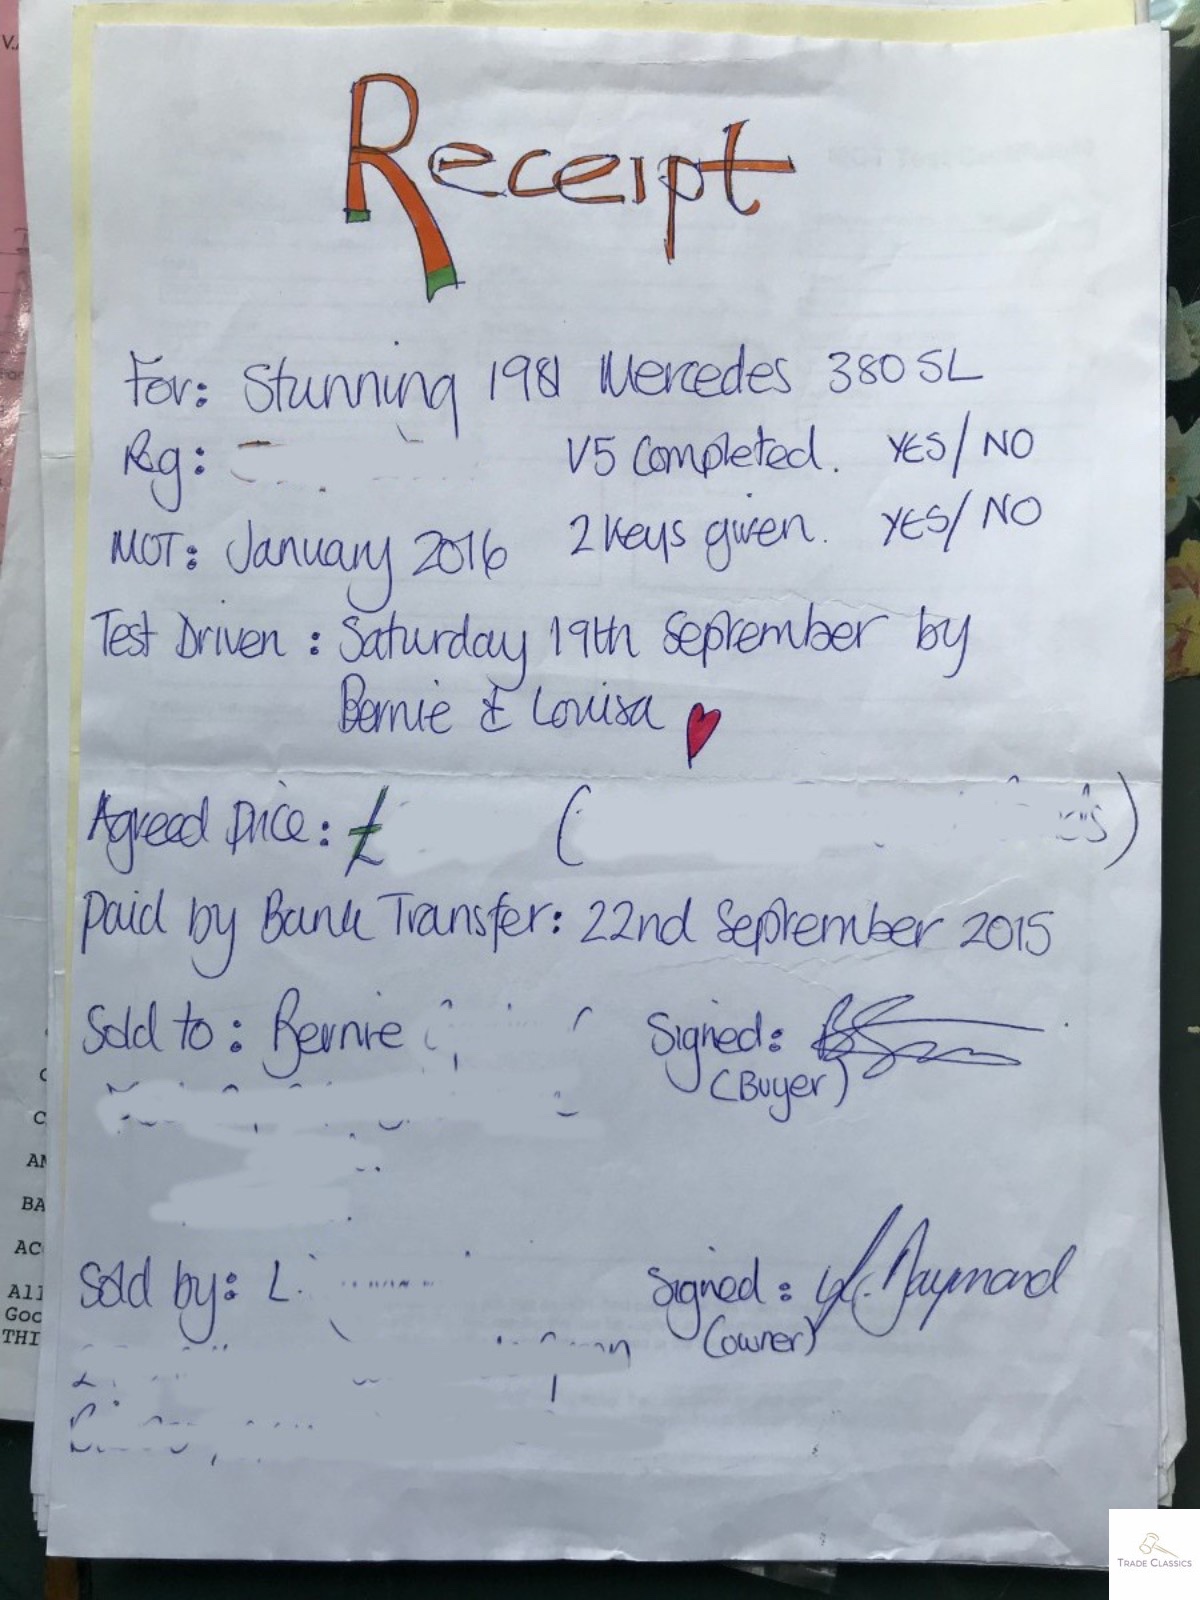 Receipt
For: Stunning 1981 Mercedes 380SL
Reg:
V5 Completed. YES/NO
MOT: January 2016
2 Keys given. YES/NO
Test Driven: Saturday 19th September by
Bernie & Louisa
Agreed Price: £ ( )
Paid by Bank Transfer: 22nd September 2015
Sold to: Bernie
Signed:
(Buyer)
Sold by: L.
Signed: Raymond
(owner)
V.
C
C
AN
BA
AC
All
Goo
THI
TRADE CLASSICS